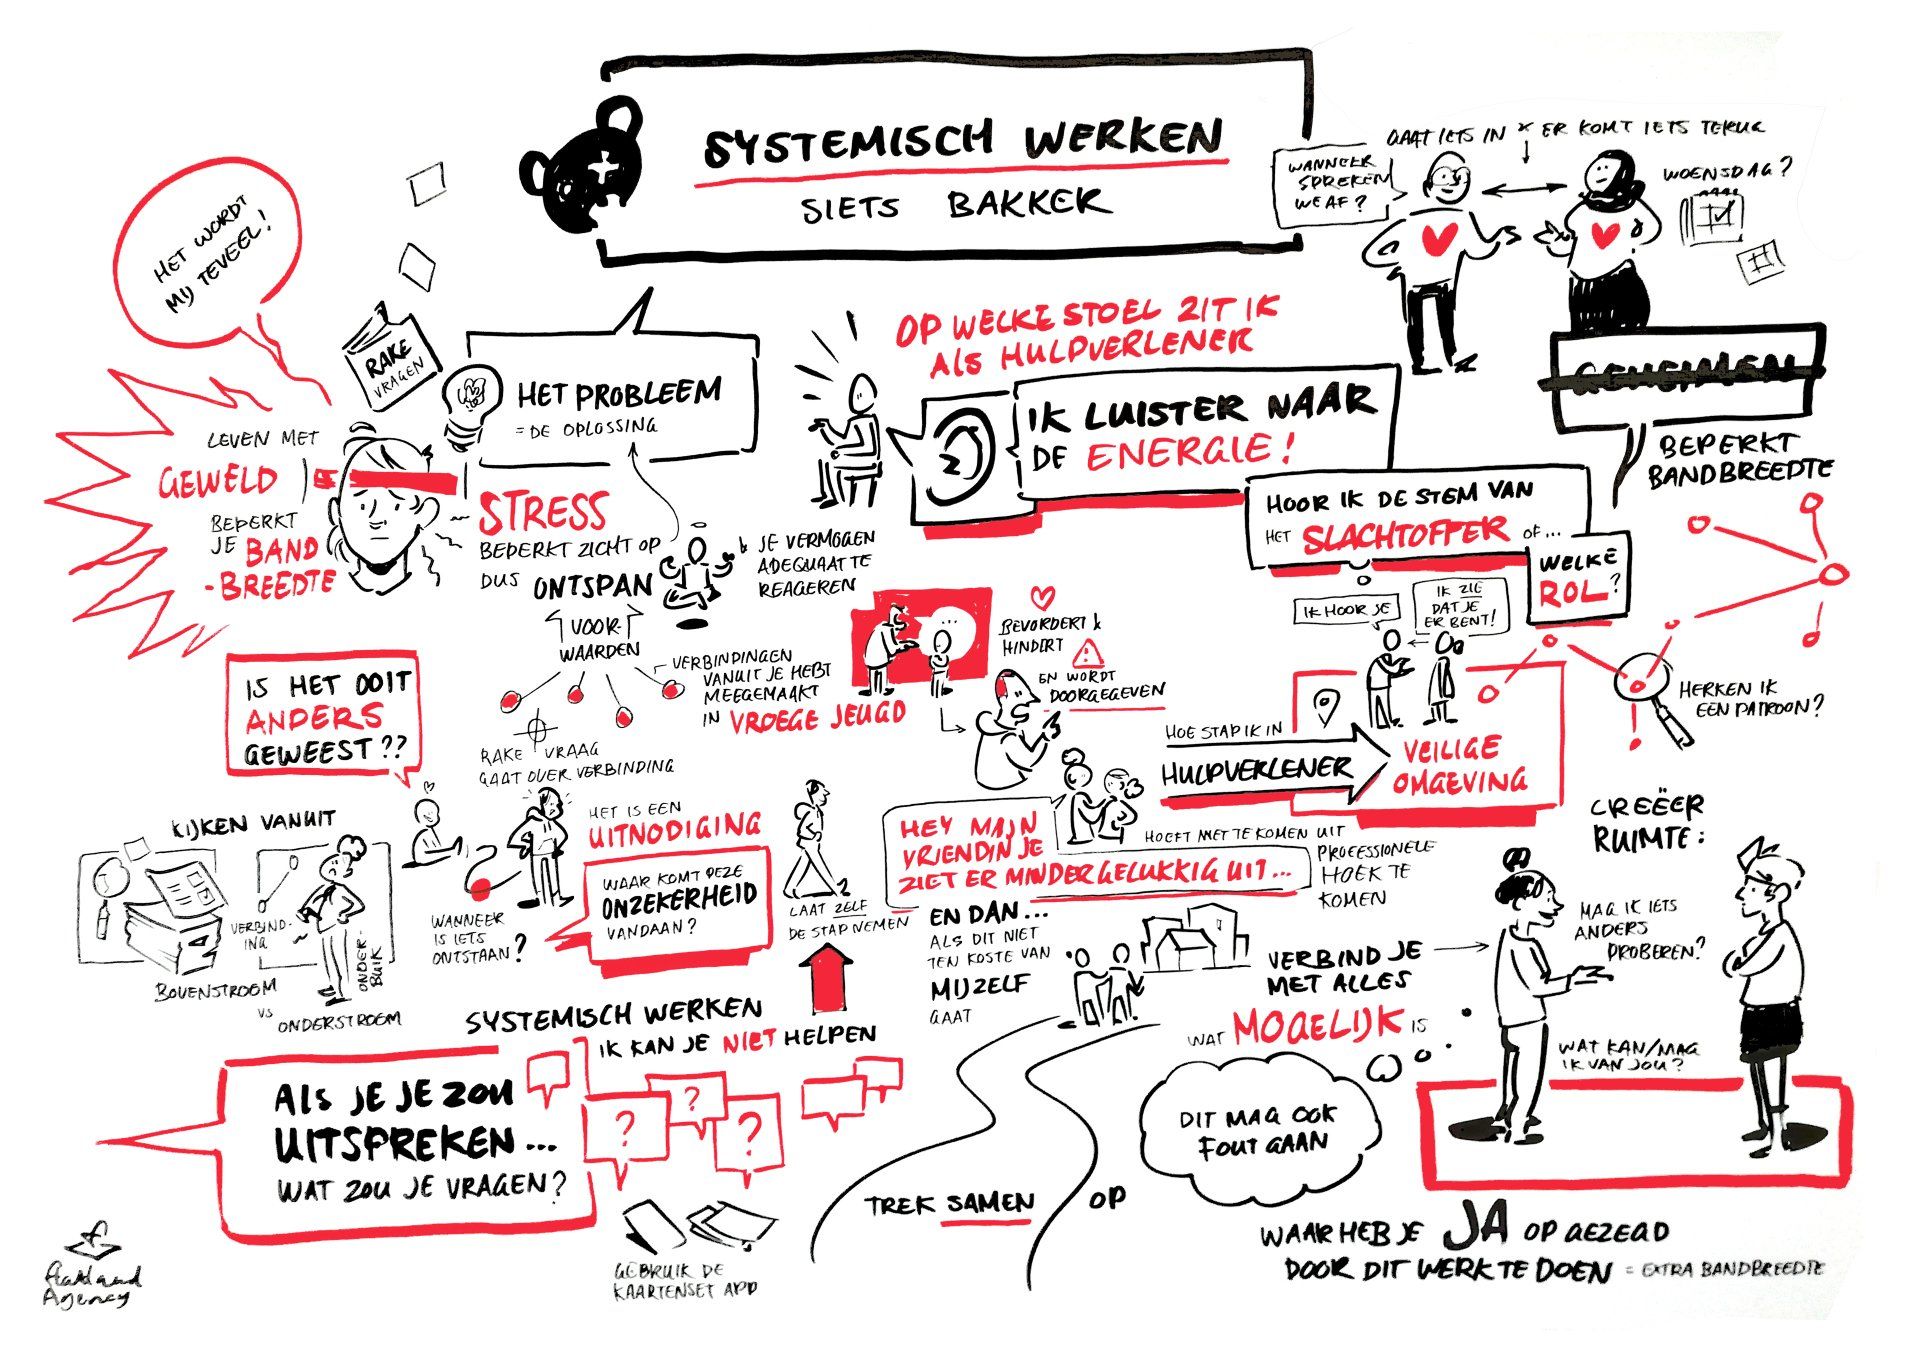 SYSTEMISCH WERKEN
SIETS BAKKER
HET WORDT
MIJ TEVEEL!
RAKE
VRAGEN
HET PROBLEEM
= DE OPLOSSING
LEVEN MET
GEWELD
BEPERKT
JE BAND
-BREEDTE
STRESS
BEPERKT ZICHT OP
DUS ONTSPAN
JE VERMOGEN
ADEQUAAT TE
REAGEREN
VOOR-
WAARDEN
VERBINDINGEN
VANUIT JE HEBT
MEEGEMAAKT
IN VROEGE JEUGD
RAKE VRAAG
GAAT OVER VERBINDING
IS HET OOIT
ANDERS
GEWEEST??
KIJKEN VANUIT
VERBIND-
ING
BOVENSTROOM
VS
ONDERSTROOM
ONDER-
BUIK
WANNEER
IS IETS
ONTSTAAN?
HET IS EEN
UITNODIGING
WAAR KOMT DEZE
ONZEKERHEID
VANDAAN?
LAAT ZELF
DE STAP NEMEN
SYSTEMISCH WERKEN
IK KAN JE NIET HELPEN
ALS JE JE ZOU
UITSPREKEN...
WAT ZOU JE VRAGEN?
?
?
?
GEBRUIK DE
KAARTENSET APP
Flatland
Agency
OP WELKE STOEL ZIT IK
ALS HULPVERLENER
IK LUISTER NAAR
DE ENERGIE!
HOOR IK DE STEM VAN
HET SLACHTOFFER OF...
WELKE
ROL?
IK HOOR JE
IK ZIE
DAT JE
ER BENT!
WANNEER
SPREKEN
WE AF?
GAAT IETS IN × ER KOMT IETS TERUG
WOENSDAG?
GEHEIMEN
BEPERKT
BANDBREEDTE
HERKEN IK
EEN PATROON?
...
BEVORDERT &
HINDERT
!
EN WORDT
DOORGEGEVEN
HOE STAP IK IN
HULPVERLENER
VEILIGE
OMGEVING
HEY MAJN
VRIENDIN JE
ZIET ER MINDER GELUKKIG UIT...
HOEFT NIET TE KOMEN UIT
PROFESSIONELE
HOEK TE
KOMEN
EN DAN...
ALS DIT NIET
TEN KOSTE VAN
MIJZELF
GAAT
VERBIND JE
MET ALLES
WAT MOGELIJK IS
CREËER
RUIMTE:
MAG IK IETS
ANDERS
PROBEREN?
WAT KAN/MAG
IK VAN JOU?
DIT MAG OOK
FOUT GAAN
TREK SAMEN OP
WAAR HEB JE JA OP GEZEGD
DOOR DIT WERK TE DOEN = EXTRA BANDBREEDTE